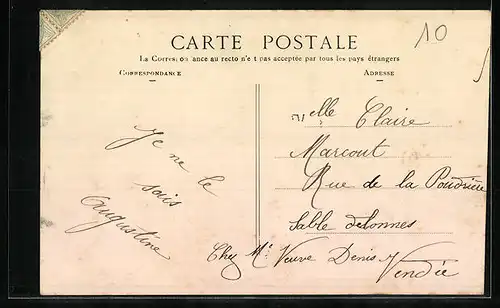 10
CARTE POSTALE
La Corres on ance au recto n'e t pas acceptée par tous les pays étrangers
CORRESPONDANCE
ADRESSE
Je ne le
sais
Augustine
Melle Claire
Marcout
Rue de la Poudrière
Sable delonnes
Chez Me Veuve Denis
Vendée